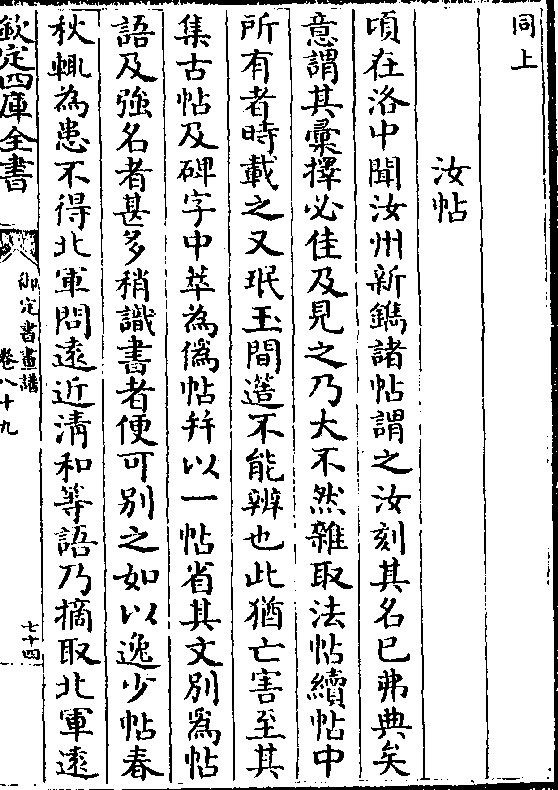 同上
汝帖
頃在洛中聞汝州新鐫諸帖謂之汝刻其名已弗典矣
意謂其彚擇必佳及見之乃大不然雜取法帖續帖中
所有者時載之又珉玉間簉不能辨也此猶亡害至其
集古帖及碑字中萃為偽帖幷以一帖省其文别為帖
語及强名者甚多稍識書者便可别之如以逸少帖春
秋輒為患不得北軍問遠近清和等語乃摘取北軍遠
欽定四庫全書
御定書畫譜
卷八十九
七十四